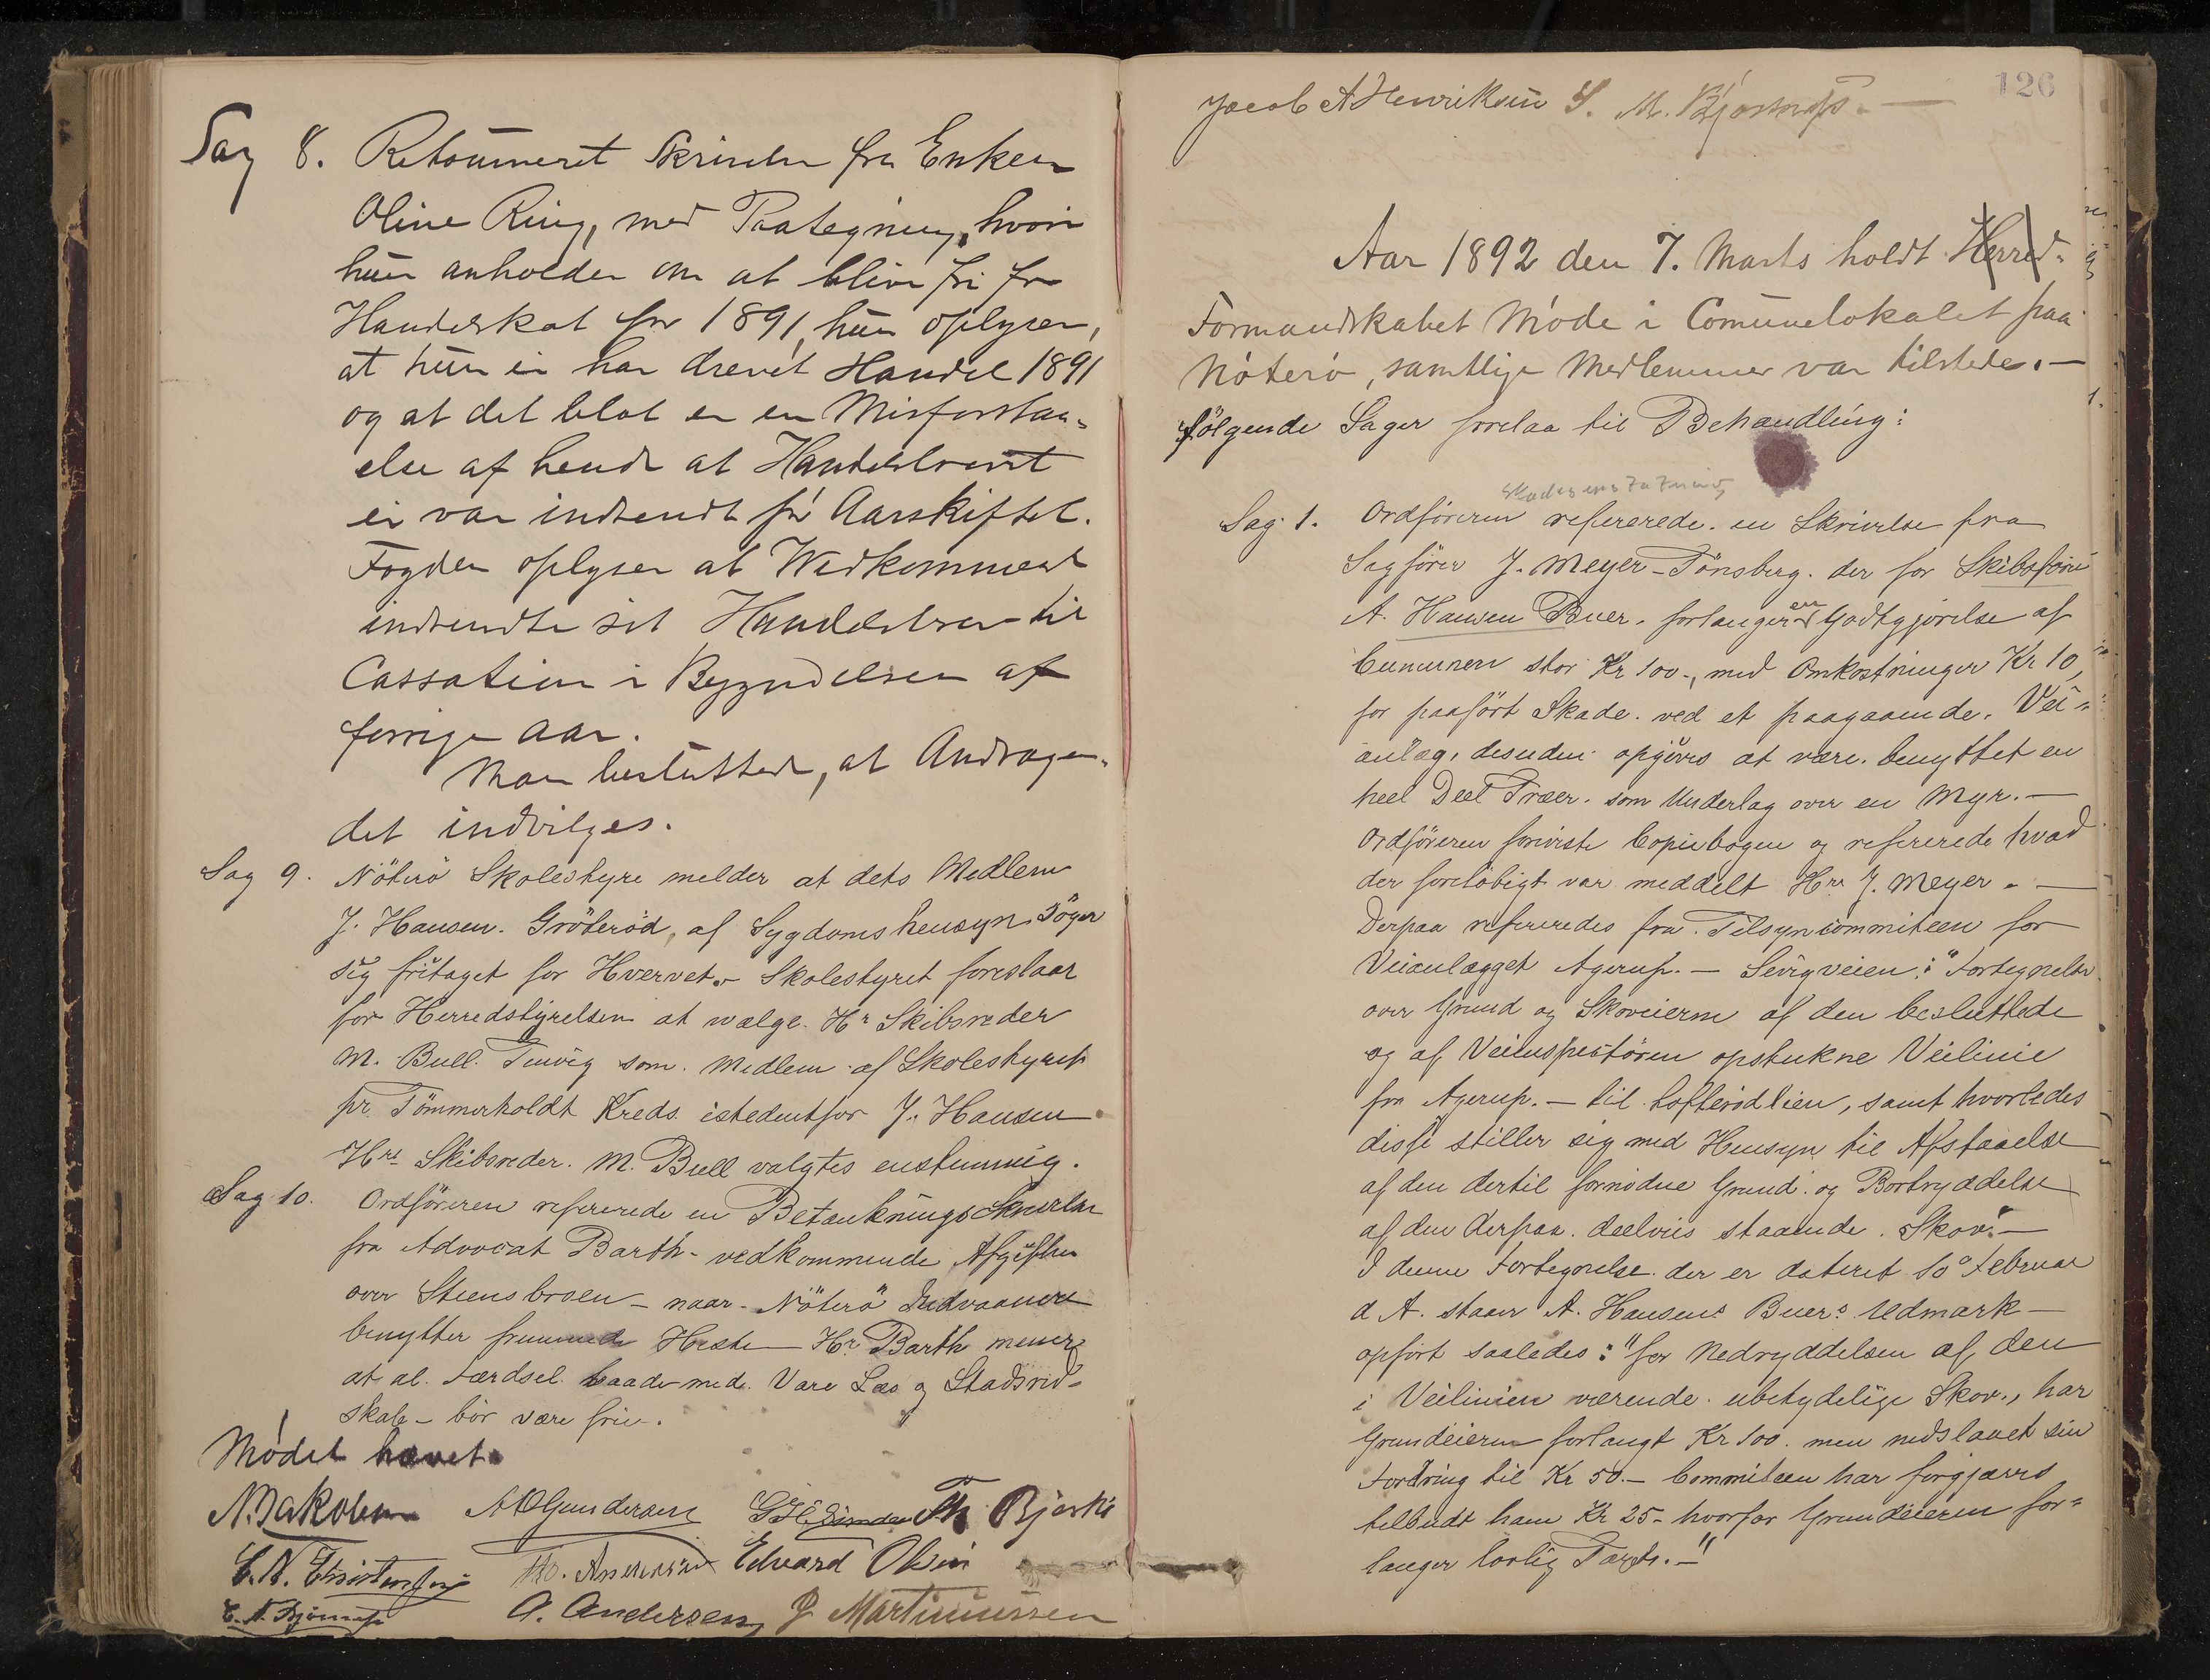 Sag 8. Retourneret Skrivelse fra Enken
Oline Ring, med Paategning, hvori
hun anholder om at blive fri for
Handelskat for 1891, hun oplyser,
at hun ei har drevet Handel 1891
og at det blot er en Misforstaa-
else af hende at Handelsbrevet
ei var indsendt før Aarskiftet.
Fogden oplyser at Vedkommende
indsendte sit Handelsbrev til
Cassation i Begyndelsen af
forrige Aar.
Man besluttede, at Andragen-
det indvilges.
Sag 9. Nöterö Skolestyre melder at dets Medlem
J. Hansen. Gröteröd, af Sygdomshensyn söger
sig fritaget for Hvervet. Skolestyret foreslaar
for Herredstyrelsen at vælge Hr Skibsreder
M. Bull. Tenvig som Medlem af Skolestyret
for Tömmerholdt Kreds istedentfor J. Hansen.
Hr. Skibsreder. M. Bull valgtes enstemmig.
Sag 10. Ordföreren refererede en Betænknings Skrivelse
fra Advocat Barth - vedkommende Afgiften
over Steensbroen - naar - Nöterö Indvaanere
benytter fremmede Heste - Hr. Barth mener
at al. Færdsel baade med. Vare Læs og Stadsred-
skab - bör være frie.
Mödet hævet.
N. Jakobsen A O Gundersen Th. Bjerke
C. N. Christensen Th. Andersen Edvard Olsen
A. Andersen P Martinussen
126
Jacob A Henriksen S. M. Bjørnøs.
Aar 1892 den 7. Marts holdt Herred-
Formandskabet Möde i Comünelokalet paa
Nöterö, samtlige Medlemmer var tilstede. —
følgende Sager forelaa til Behandling:
Skadeserstatning
Sag 1. Ordföreren refererede en Skrivelse fra
Sagförer J. Meyer - Tönsberg. der for Skibsförer
A. Hansen Buer. forlanger en Godtgjörelse af
Comunen stor Kr 100., med Omkostninger Kr 10,
for paafört Skade. ved et paagaaende. Vei-
anlæg, desuden opgives at være. benyttet en
heel Deel Træer. som Underlag over en Myr. —
Ordföreren foreviste Copiebogen og refererede hvad
der forelöbigt var meddelt Hr. J. Meyer. —
Derpaa refereredes fra Tilsyncommiteen for
Veianlægget Agerup. — Sevigveien: "Fortegnelse
over Grund og Skoveierne af den besluttede
og af Veiinspectören opstukne Veilinie
fra Agerup. — til Lofterödlien, samt hvorledes
disse stiller sig med Hensyn til Afstaaelse
af den dertil fornödne Grund. og Bortryddelse
af den derpaa. deelviis staaende. Skov." —
I denne Fortegnelse der er dateret 10de Februar
d A. staar A. Hansens Buers Udmark —
opfört saaledes: "for Nedryddelsen af den
i Veilinien værende. ubetydelige Skov., har
Grundeieren forlangt Kr 100. men nedslaaet sin
Fordring til Kr 50. — Commiteen har forgjæves
tilbudt ham Kr 25 - hvorfor Grundeieren for-
langer lovlig Taxt. —"